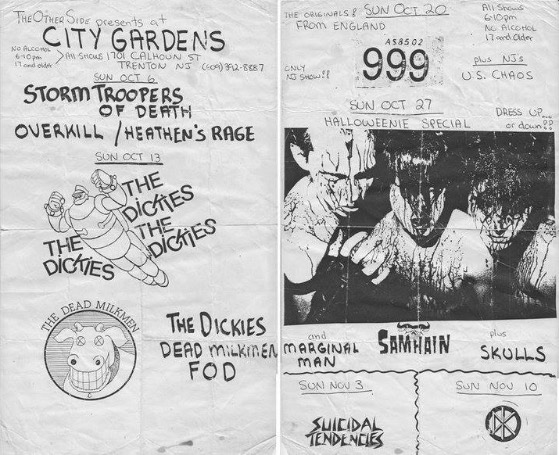 THE OTHER SIDE presents at
CITY GARDENS
NO ALCOHOL
6-10 pm
17 and older
All Shows 1701 CALHOUN ST
TRENTON NJ (609)392-8887
SUN OCT 6
STORM TROOPERS
OF DEATH
OVERKILL / HEATHEN'S RAGE
SUN OCT 13
THE
DICKIES
THE
DICKIES
THE
DICKIES
THE DEAD MILKMEN
THE DICKIES
DEAD MILKMEN
FOD
THE ORIGINALS!! SUN OCT 20
FROM ENGLAND
All Shows
6-10pm
No Alcohol
17 and Older
ONLY
NJ SHOW!!
A58502
999
plus NJs
U.S. CHAOS
SUN OCT 27
HALLOWEENIE SPECIAL
DRESS UP...
or down!!
and
MARGINAL
MAN
SAMHAIN
plus
SKULLS
SUN NOV 3
SUICIDAL
TENDENCIES
SUN NOV 10
DK